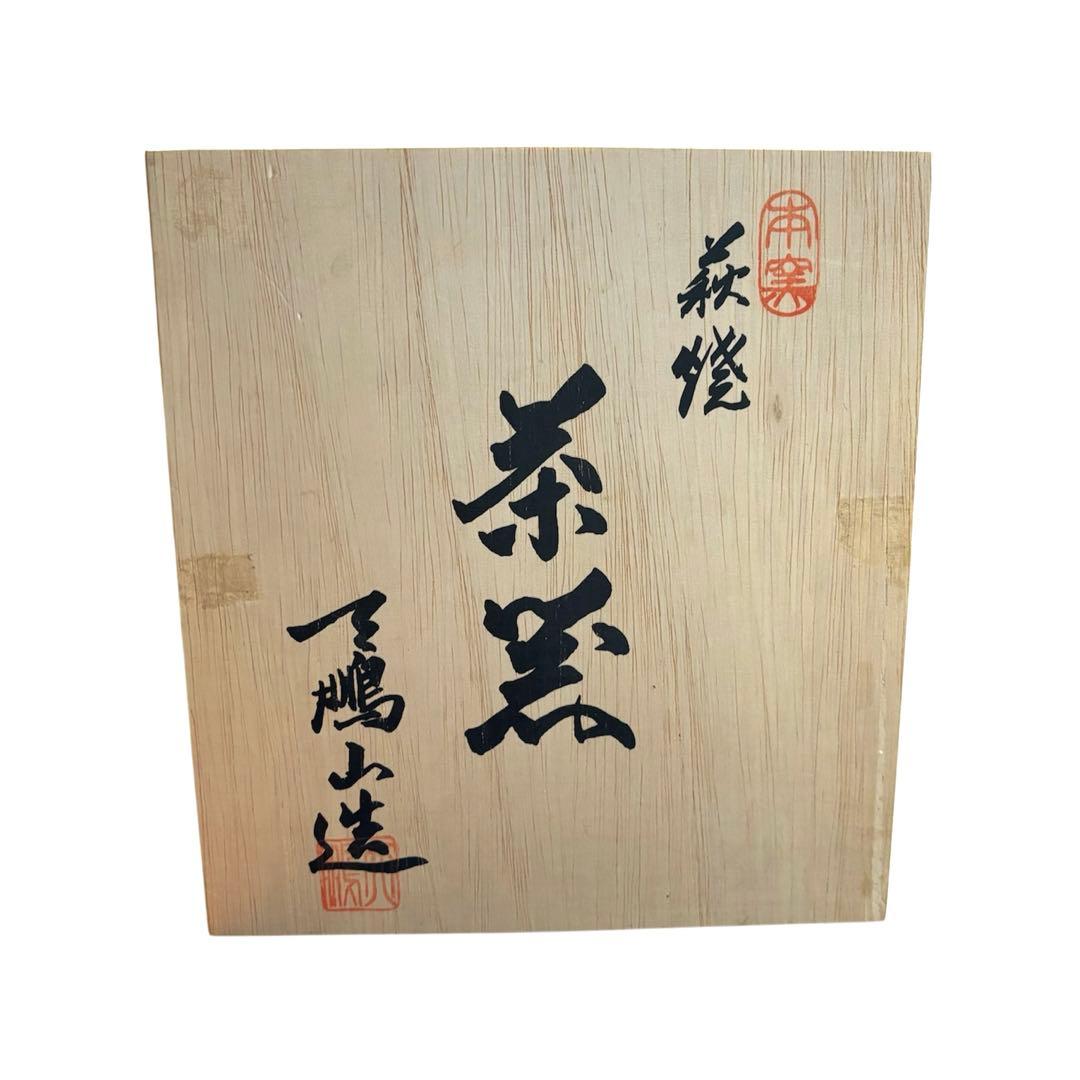 本窯
萩焼
茶器
天鵬山造